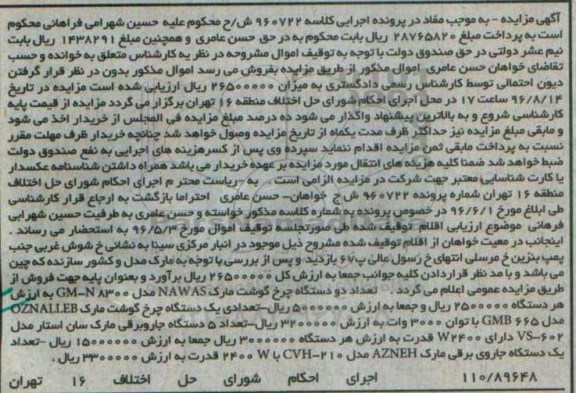 آگهی مزایده - به موجب مفاد در پرونده اجرایی کلاسه ۹۶۰۷۲۲ ش/ح محکوم علیه حسین شهرامی فراهانی محکوم
است به پرداخت مبلغ ۲۸۷۶۵۸۲۰ ریال بابت محکوم به در حق حسن عامری و همچنین مبلغ ۱۴۳۸۲۹۱ ریال بابت
نیم عشر دولتی در حق صندوق دولت با توجه به توقیف اموال مشروحه در نظریه کارشناس متعلق به خوانده و حسب
تقاضای خواهان حسن عامری اموال مذکور از طریق مزایده بفروش می رسد اموال مذکور بدون در نظر قرار گرفتن
دیون احتمالی توسط کارشناس رسمی دادگستری به میزان ۲۶۵۰۰۰۰۰ ریال ارزیابی شده است مزایده در تاریخ
۹۶/۸/۱۴ ساعت ۱۷ در محل اجرای احکام شورای حل اختلاف منطقه ۱۶ تهران برگزار می گردد مزایده از قیمت پایه
کارشناسی شروع و به بالاترین پیشنهاد واگذار می شود ده درصد مبلغ مزایده فی المجلس از خریدار اخذ می شود
و مابقی مبلغ مزایده نیز حداکثر ظرف مدت یکماه از تاریخ مزایده وصول خواهد شد چنانچه خریدار ظرف مهلت مقرر
نسبت به پرداخت مابقی ثمن مزایده اقدام ننماید سپرده وی پس از کسر هزینه های اجرایی به نفع صندوق دولت
ضبط خواهد شد ضمنا کلیه هزینه های انتقال مورد مزایده بر عهده خریدار می باشد همراه داشتن شناسنامه عکسدار
یا کارت شناسایی معتبر جهت شرکت در مزایده الزامی است . به ریاست محترم اجرای احکام شورای حل اختلاف
منطقه ۱۶ تهران شماره پرونده ۹۶۰۷۲۲ ش ح خواهان- حسن عامری احتراما بازگشت به ارجاع قرار کارشناسی
طی ابلاغ مورخ ۹۶/۶/۱ در خصوص پرونده به شماره کلاسه مذکور خواسته و حسن عامری به طرفیت حسین شهرابی
فرهانی موضوع ارزیابی اقلام توقیف شده طی صورتجلسه توقیف اموال مورخ ۹۶/۵/۳ به استحضار می رساند .
اینجانب در معیت خواهان از اقلام توقیف شده مشروح ذیل موجود در انبار مرکزی سینا به نشانی خ شوش غربی جنب
پمپ بنزین خ مرسلی انتهای خ رسول عالی پ۶۷ بازدید و پس از بررسی با توجه به مارک مدل و کشور سازنده که چین
می باشد و با مد نظر قراردادن کلیه جوانب جمعا به ارزش کل ۲۶۵۰۰۰۰۰ ریال برآورد و بعنوان پایه جهت فروش از
طریق مزایده عمومی اعلام می گردد . تعداد دو دستگاه چرخ گوشت مارک NAWAS مدل GM-N ۸۳۰۰ به ارزش
هر دستگاه ۲۵۰۰۰۰۰ ریال و جمعا به ارزش ۵۰۰۰۰۰۰ ریال-تعدادی یک دستگاه چرخ گوشت مارک OZNALLEB
مدل GMB ۶۶۵ با توان ۳۰۰۰ وات به ارزش ۳۲۰۰۰۰۰ ریال-تعداد ۵ دستگاه جاروبرقی مارک سان استار مدل
VS-۶۰۲ دارای W۲۴۰۰ قدرت به ارزش هر دستگاه ۳۰۰۰۰۰۰ ریال جمعا به ارزش ۱۵۰۰۰۰۰۰ ریال -تعداد
یک دستگاه جاروی برقی مارک AZNEH مدل CVH-۲۱۰ با W ۲۴۰۰ قدرت به ارزش ۳۳۰۰۰۰۰ ریال .
۱۱۰/۸۹۶۴۸ اجرای احکام شورای حل اختلاف ۱۶ تهران